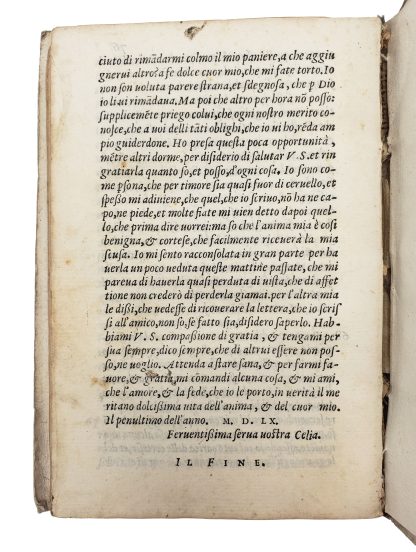 ciuto di rimādarmi colmo il mio paniere, a che aggiu
gnerui altro? a fe dolce cuor mio, che mi fate torto. Io
non son uoluta parere strana, et sdegnosa, che p Dio
io li ui rimādaua. Ma poi che altro per hora nō posso:
supplicemēte priego colui, che ogni nostro merito co-
nosce, che a uoi delli tāti oblighi, che io ui ho, rēda am
pio guiderdone. Ho presa questa poca opportunità,
mētre altri dorme, per disiderio di salutar V S. et rin
gratiarla quanto so, et posso, d'ogni cosa. Io sono co-
me psona, che per timore sia quasi fuor di ceruello, et
spesso mi adiuiene, che quel, che io scriuo, nō ha ne ca-
po, ne piede, et molte fiate mi uien detto dapoi quel-
lo, che prima dire uorrei: ma so che l'anima mia è cosi
benigna, & cortese, che facilmente riceuerà la mia
scusa. Io mi sento racconsolata in gran parte per ha
uerla un poco ueduta queste mattine passate, che mi
pareua di hauerla quasi perduta di uista, che di affet
tione non crederò di perderla giamai. per l'altra mia
le dissi, che uedesse di ricouerare la lettera, che io scris
si all'amico, non so, se fatto sia, disidero saperlo. Hab
biami V S. compassione di gratia, & tengami per
sua sempre, dico sempre, che di altrui essere non pos-
so, ne uoglio. Attenda a stare sana, & per farmi fa-
uore, & gratia, mi comandi alcuna cosa, & mi ami,
che l'amore, & la fede, che io le porto, in uerità il me
ritano dolcissima uita dell'anima, & del cuor mio.
Il penultimo dell'anno. M. D. LX.
Feruentissima serua uostra Celia.
IL FINE.